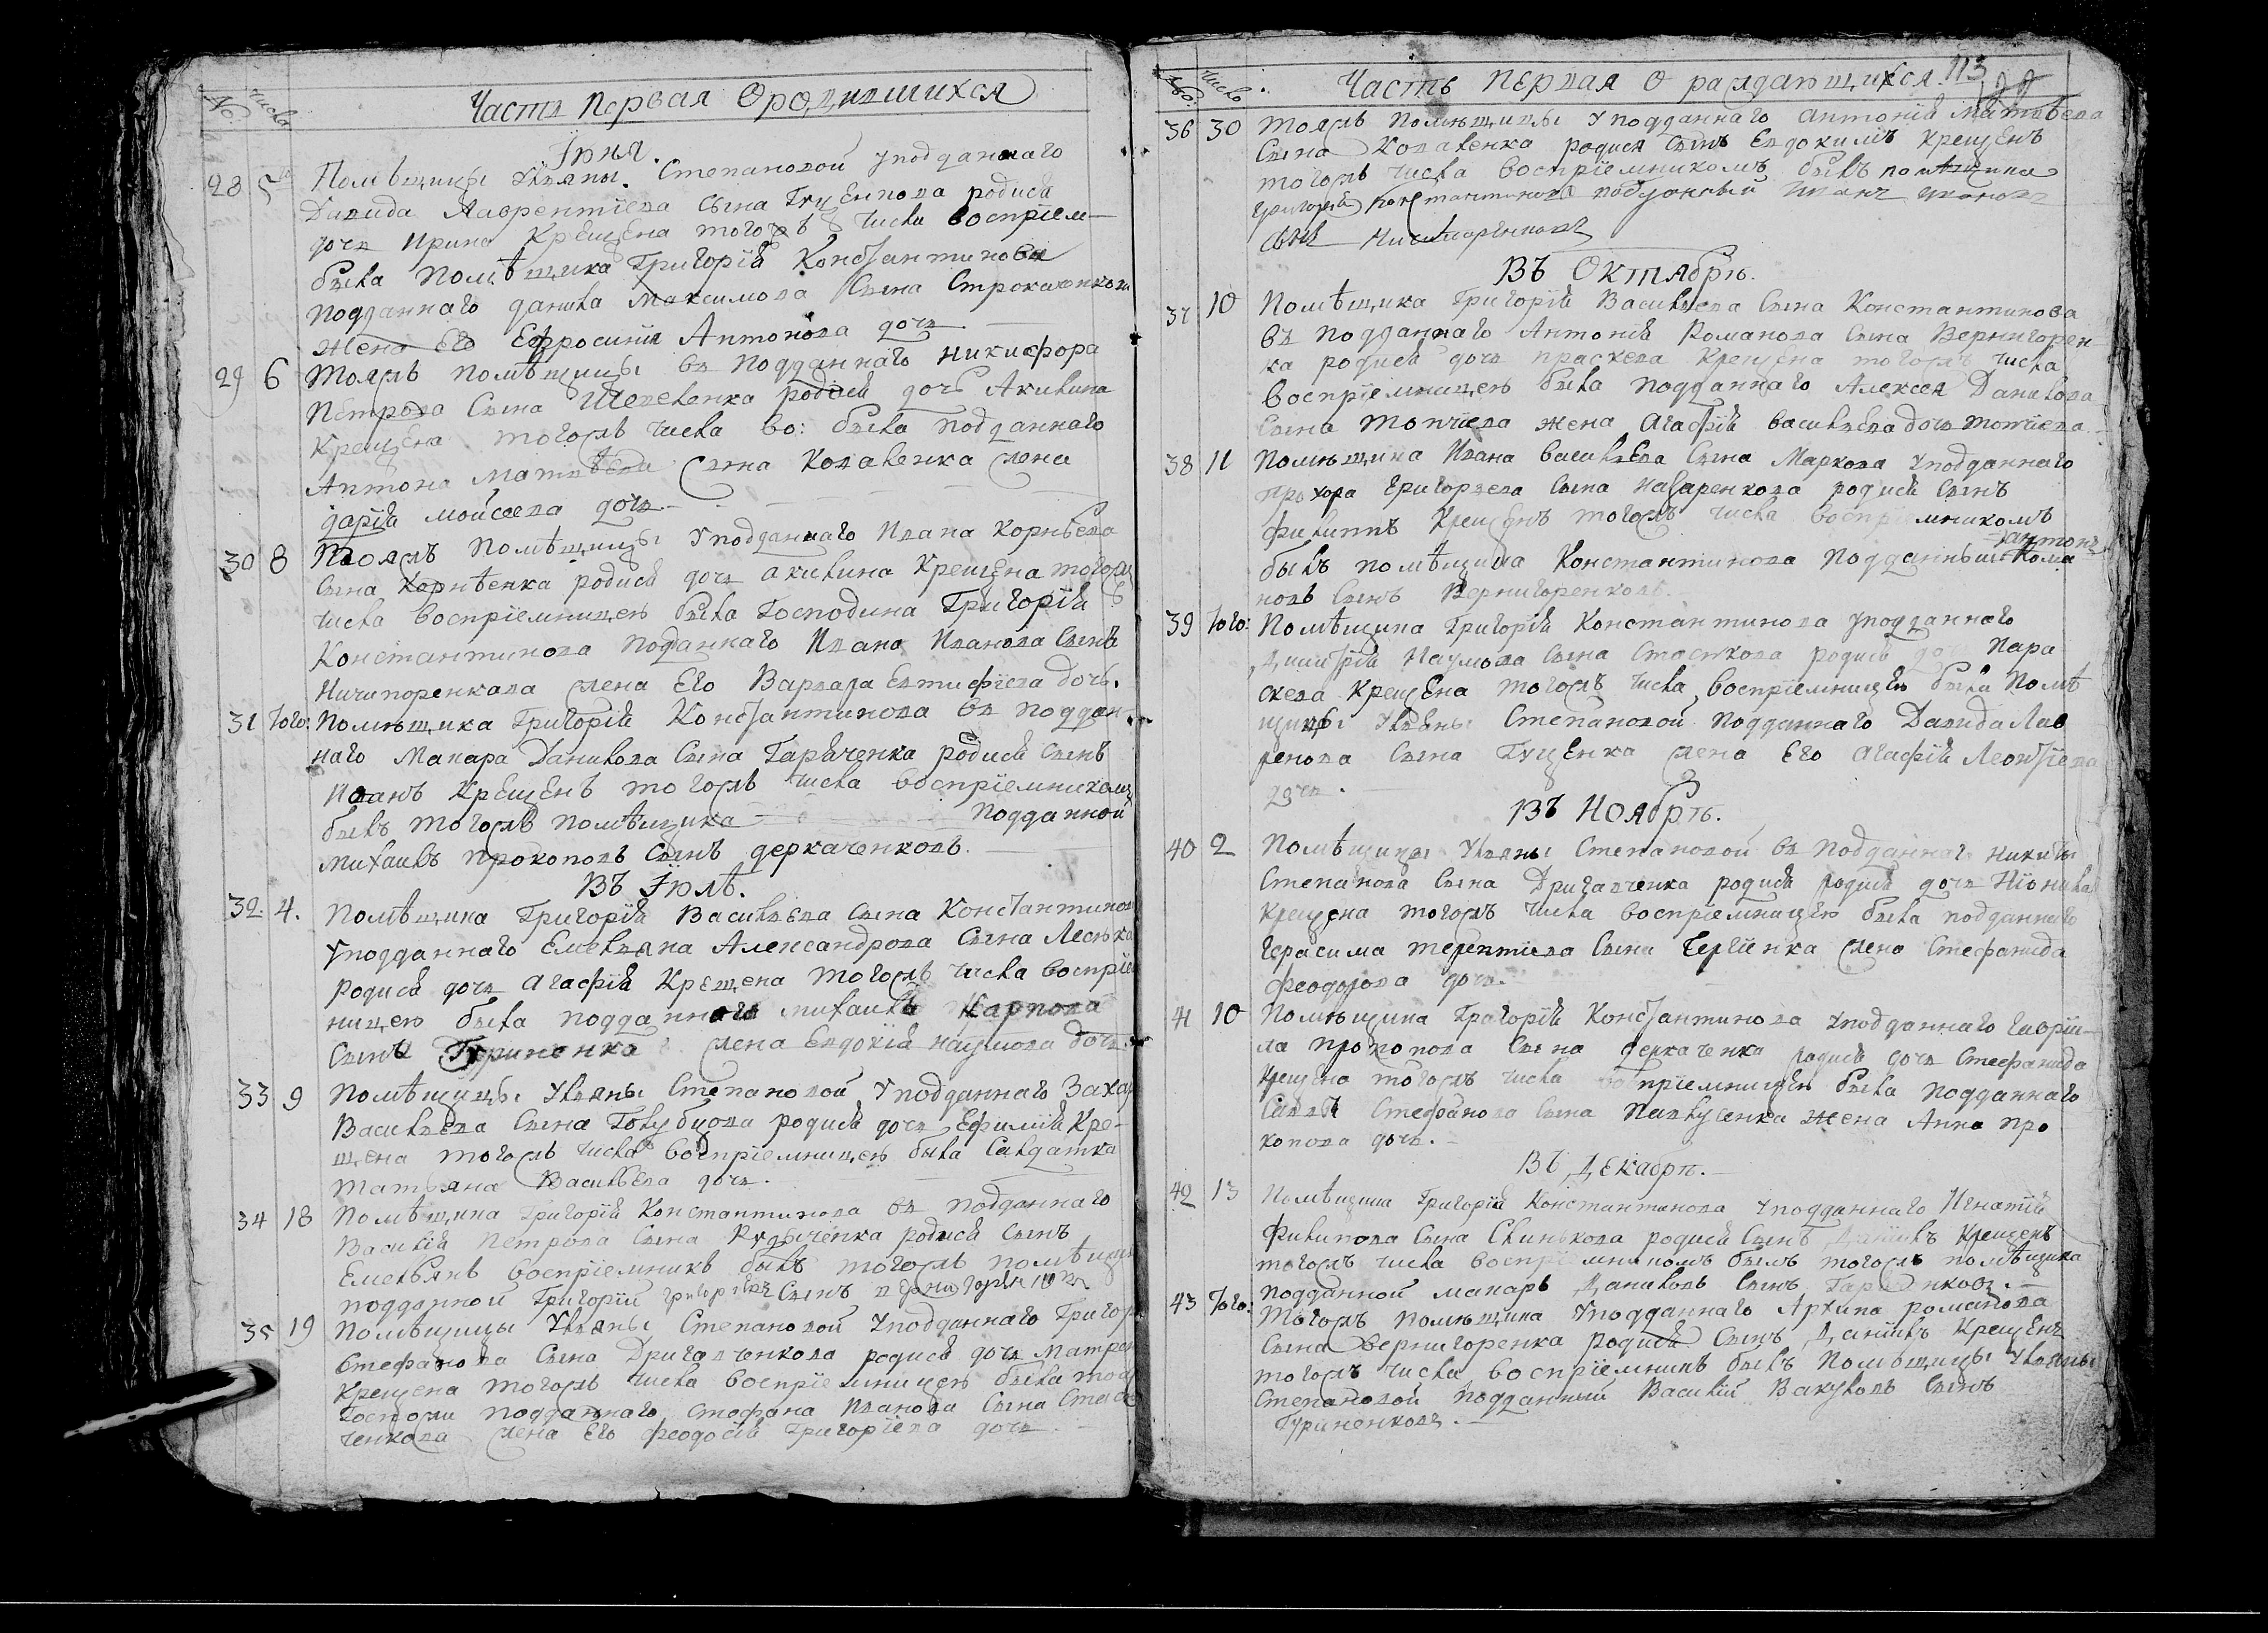 №. числа
Часть первая О родившихся
Іюня.
28 5 Помѣщицы Ульяны Степановой у подданнаго
Давида Лаврентіева сына Гуценкова родися
дочь Ирина крещена тогожъ числа воспріем—
была помѣщика Григорія Константинова
подданнаго данила Максимова сына
жена его Ефросинія Антонова дочь
29 6 Тояжъ помѣщицы въ подданнаго никифора
Петрова сына Шевеленка родися дочь Акилина
крещена тогожъ числа во: была подданнаго
Антона Матвѣева сына Коваленка жена
дарія мойсеева дочь
30 8 Тояжъ помѣщицы у подданнаго Ивана Корнѣева
сына Корнѣенка родися дочь акилина крещена тогожъ
числа воспріемницею была Господина Григорія
Константинова подданнаго Ивана Иванова сына
Ничипоренкова жена его Варвара Евтифіева дочь.
31 того: Помѣщика Григорія Константинова въ поддан-
наго Макара Данилова сына Гаряченка родися сынъ
Иванъ крещенъ тогожъ числа воспріемникомъ
былъ тогожъ помѣщика подданной
михаилъ прокоповъ сынъ деркаченковъ.
Въ Іюлѣ.
32 4. Помѣщика Григорія Васильева сына Константинова
у подданнаго Емельяна Александрова сына
родися дочь агафія крещена тогожъ числа воспріем
ницею была подданнаго михаила Карпова
сына Гуриненка жена Евдокія наумова дочь
33 9 Помѣщицы Ульяны Степановой у подданнаго Захара
Васильева сына Голубцова родися дочь Ефимія кре-
щена тогожъ числа воспріемницею была Салдатка
татьяна Васильева дочь.
34 18 Помѣщика Григорія Константинова въ подданнаго
Василія Петрова сына родися сынъ
Емельянъ воспріемникъ былъ тогожъ помѣщика
подданной Григорій григорьевъ сынъ
35 19 Помѣщицы Ульяны Степановой у подданнаго Григор
Стефанова сына Дригалченкова родися дочь Матрен
крещена тогожъ числа воспріемницею была тоя
Госпожи подданнаго стефана Иванова сына
ченкова жена его феодосія Григоріева дочь
№. число
Часть Первая О раждающихся. 113
36 30 Тояжъ помѣщицы у подданнаго антонія матвѣева
сына Коваленка родися сынъ Евдокимъ крещенъ
тогожъ числа воспріемникомъ былъ помѣщика
григорія константинова подданный Иванъ ивановъ
сынъ Ничипоренковъ
Въ Октябрѣ.
37 10 Помѣщика Григорія Васильева сына Константинова
въ подданнаго Антонія Романова сына Вернигорен-
ка родися дочь праскева крещена тогожъ числа
воспріемницею была подданнаго Алексея Данилова
сына Топчіева жена Агафія васильева дочь топчіева.
38 11 Помѣщика Ивана васильева сына Маркова у подданнаго
прохора григорьева сына назаренкова родися сынъ
филиппъ крещенъ тогожъ числа воспріемникомъ
былъ помѣщика Константинова подданный антонъ Рома
новъ сынъ Вернигоренковъ.
39 того: Помѣщика Григорія Константинова у подданнаго
Димитрія Наумова сына родися доч Пара
скева крещена тогожъ числа воспріемницею была помѣ
щицы Ульяны Степановой подданнаго Давида Лав
ренова сына Гуценка жена его агафія Леонтіева
дочь.
Въ Ноябрѣ.
40 2 Помѣщицы Ульяны Степановой въ подданнаго никиты
Степанова сына Дригалченка родися родися дочь
крещена тогожъ числа воспріемницею была подданнаго
герасима терентіева сына жена Стефанида
феодорова дочь.
41 10 Помѣщика Григорія Константинова у подданнаго гаврі-
ла прокопова сына деркаченка родися дочь Стефанида
крещена тогожъ числа воспріемницею была подданнаго
саввы Стефанова сына Павлусенка жена Анна про
копова дочь.
Въ Декабрѣ.
42 13 Помѣщика Григорія Константинова у подданнаго Игнатія
Филипова сына родися сынъ Даніилъ крещенъ
тогожъ числа воспріемникомъ былъ тогожъ помѣщика
подданной макаръ Даниловъ сынъ
43 того: Тогожъ помѣщика у подданнаго Архипа романова
сына вернигоренка родися сынъ Даніилъ крещенъ
тогожъ числа воспріемникъ былъ помѣщицы Ульяны
Степановой подданный Василій Вакуловъ сынъ
Гуриненковъ.